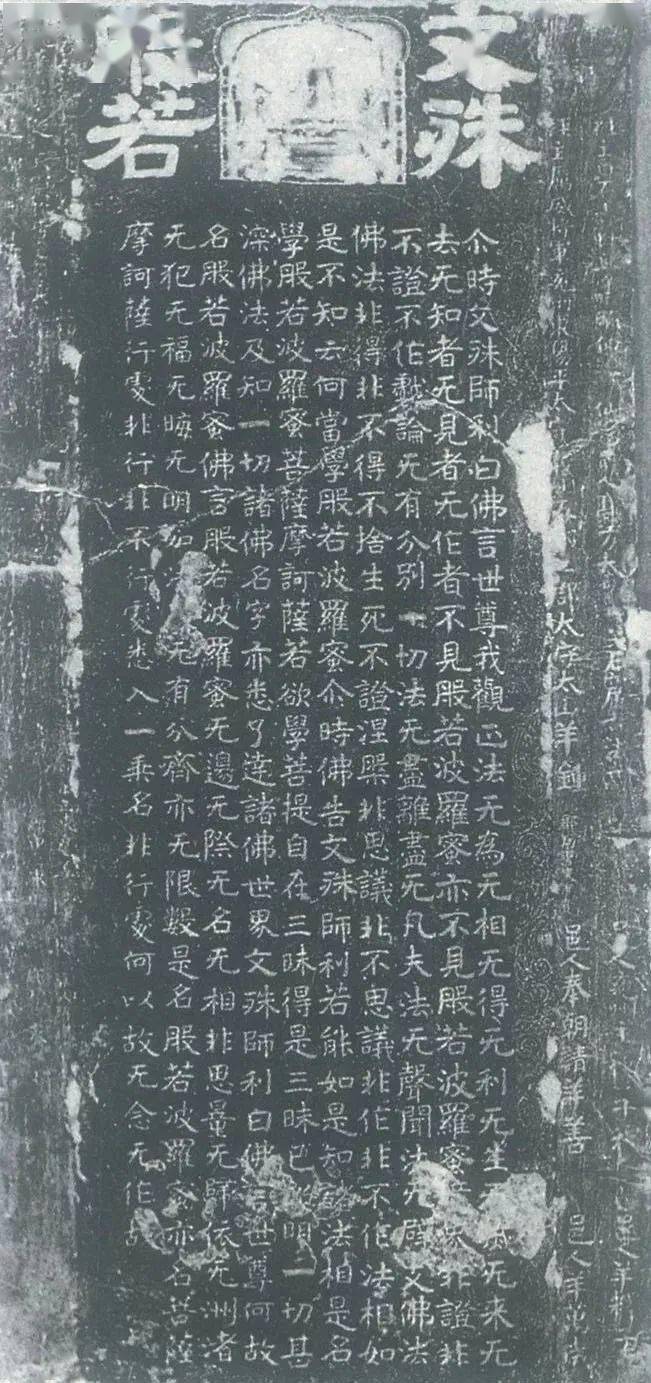 文殊
般若
郡太守太山羊釗 邑人奉朝請羊善 邑人羊
尒時文殊師利白佛言世尊我觀正法无為无相无得无利无生无来无
去无知者无見者无作者不見般若波羅蜜亦不見般若波羅蜜非證非
不證不作戲論无有分別一切法无盡離盡无凡夫法无聲聞法无辟支佛法
佛法非得非不得不捨生死不證涅槃非思議非不思議非作非不作法相如
是不知云何當學般若波羅蜜尒時佛告文殊師利若能如是知諸法相是名
學般若波羅蜜菩薩摩訶薩若欲學菩提自在三昧得是三昧已明一切甚
深佛法及知一切諸佛名字亦悉了達諸佛世界文殊師利白佛言世尊何故
名般若波羅蜜佛言般若波羅蜜无邊无際无名无相非思量无歸依无洲渚
无犯无福无晦无明如法无有分齊亦无限數是名般若波羅蜜亦名菩薩
摩訶薩行處非行非不行處悉入一乘名非行處何以故无念无作故